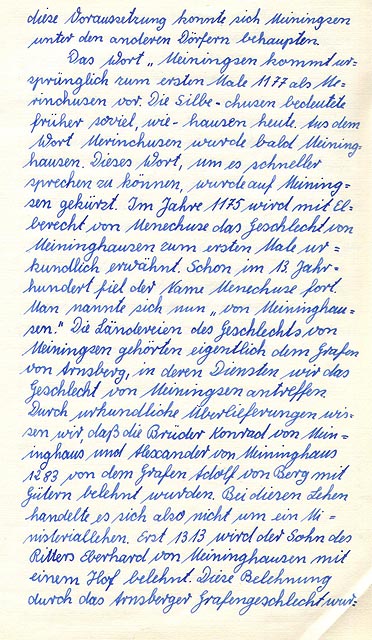 diese Voraussetzung konnte sich Meiningsen
unter den anderen Dörfern behaupten.
Das Wort „Meiningsen kommt ur=
sprünglich zum ersten Male 1177 als Me=
rinchusen vor. Die Silbe -chusen bedeutete
früher soviel, wie - hausen heute. Aus dem
Wort Merinchusen wurde bald Meining=
hausen. Dieses Wort, um es schneller
sprechen zu können, wurde auf Meining=
sen gekürzt. Im Jahre 1175 wird mit El=
berecht von Menechuse das Geschlecht von
Meininghausen zum ersten Male ur=
kundlich erwähnt. Schon im 13. Jahr=
hundert fiel der Name Menechuse fort.
Man nannte sich nun „von Meininghau=
sen." Die Ländereien des Geschlechts von
Meiningsen gehörten eigentlich dem Grafen
von Arnsberg, in deren Diensten wir das
Geschlecht von Meiningsen antreffen.
Durch urkundliche Überlieferungen wis=
sen wir, daß die Brüder Konrad von Mein=
inghaus und Alexander von Meininghaus
1283 von dem Grafen Adolf von Berg mit
Gütern belehnt wurden. Bei diesen Lehen
handelte es sich also nicht um ein Mi=
nisteriallehen. Erst 1313 wird der Sohn des
Ritters Eberhard von Meininghausen mit
einem Hof belehnt. Diese Belehnung
durch das Arnsberger Grafengeschlecht wur=